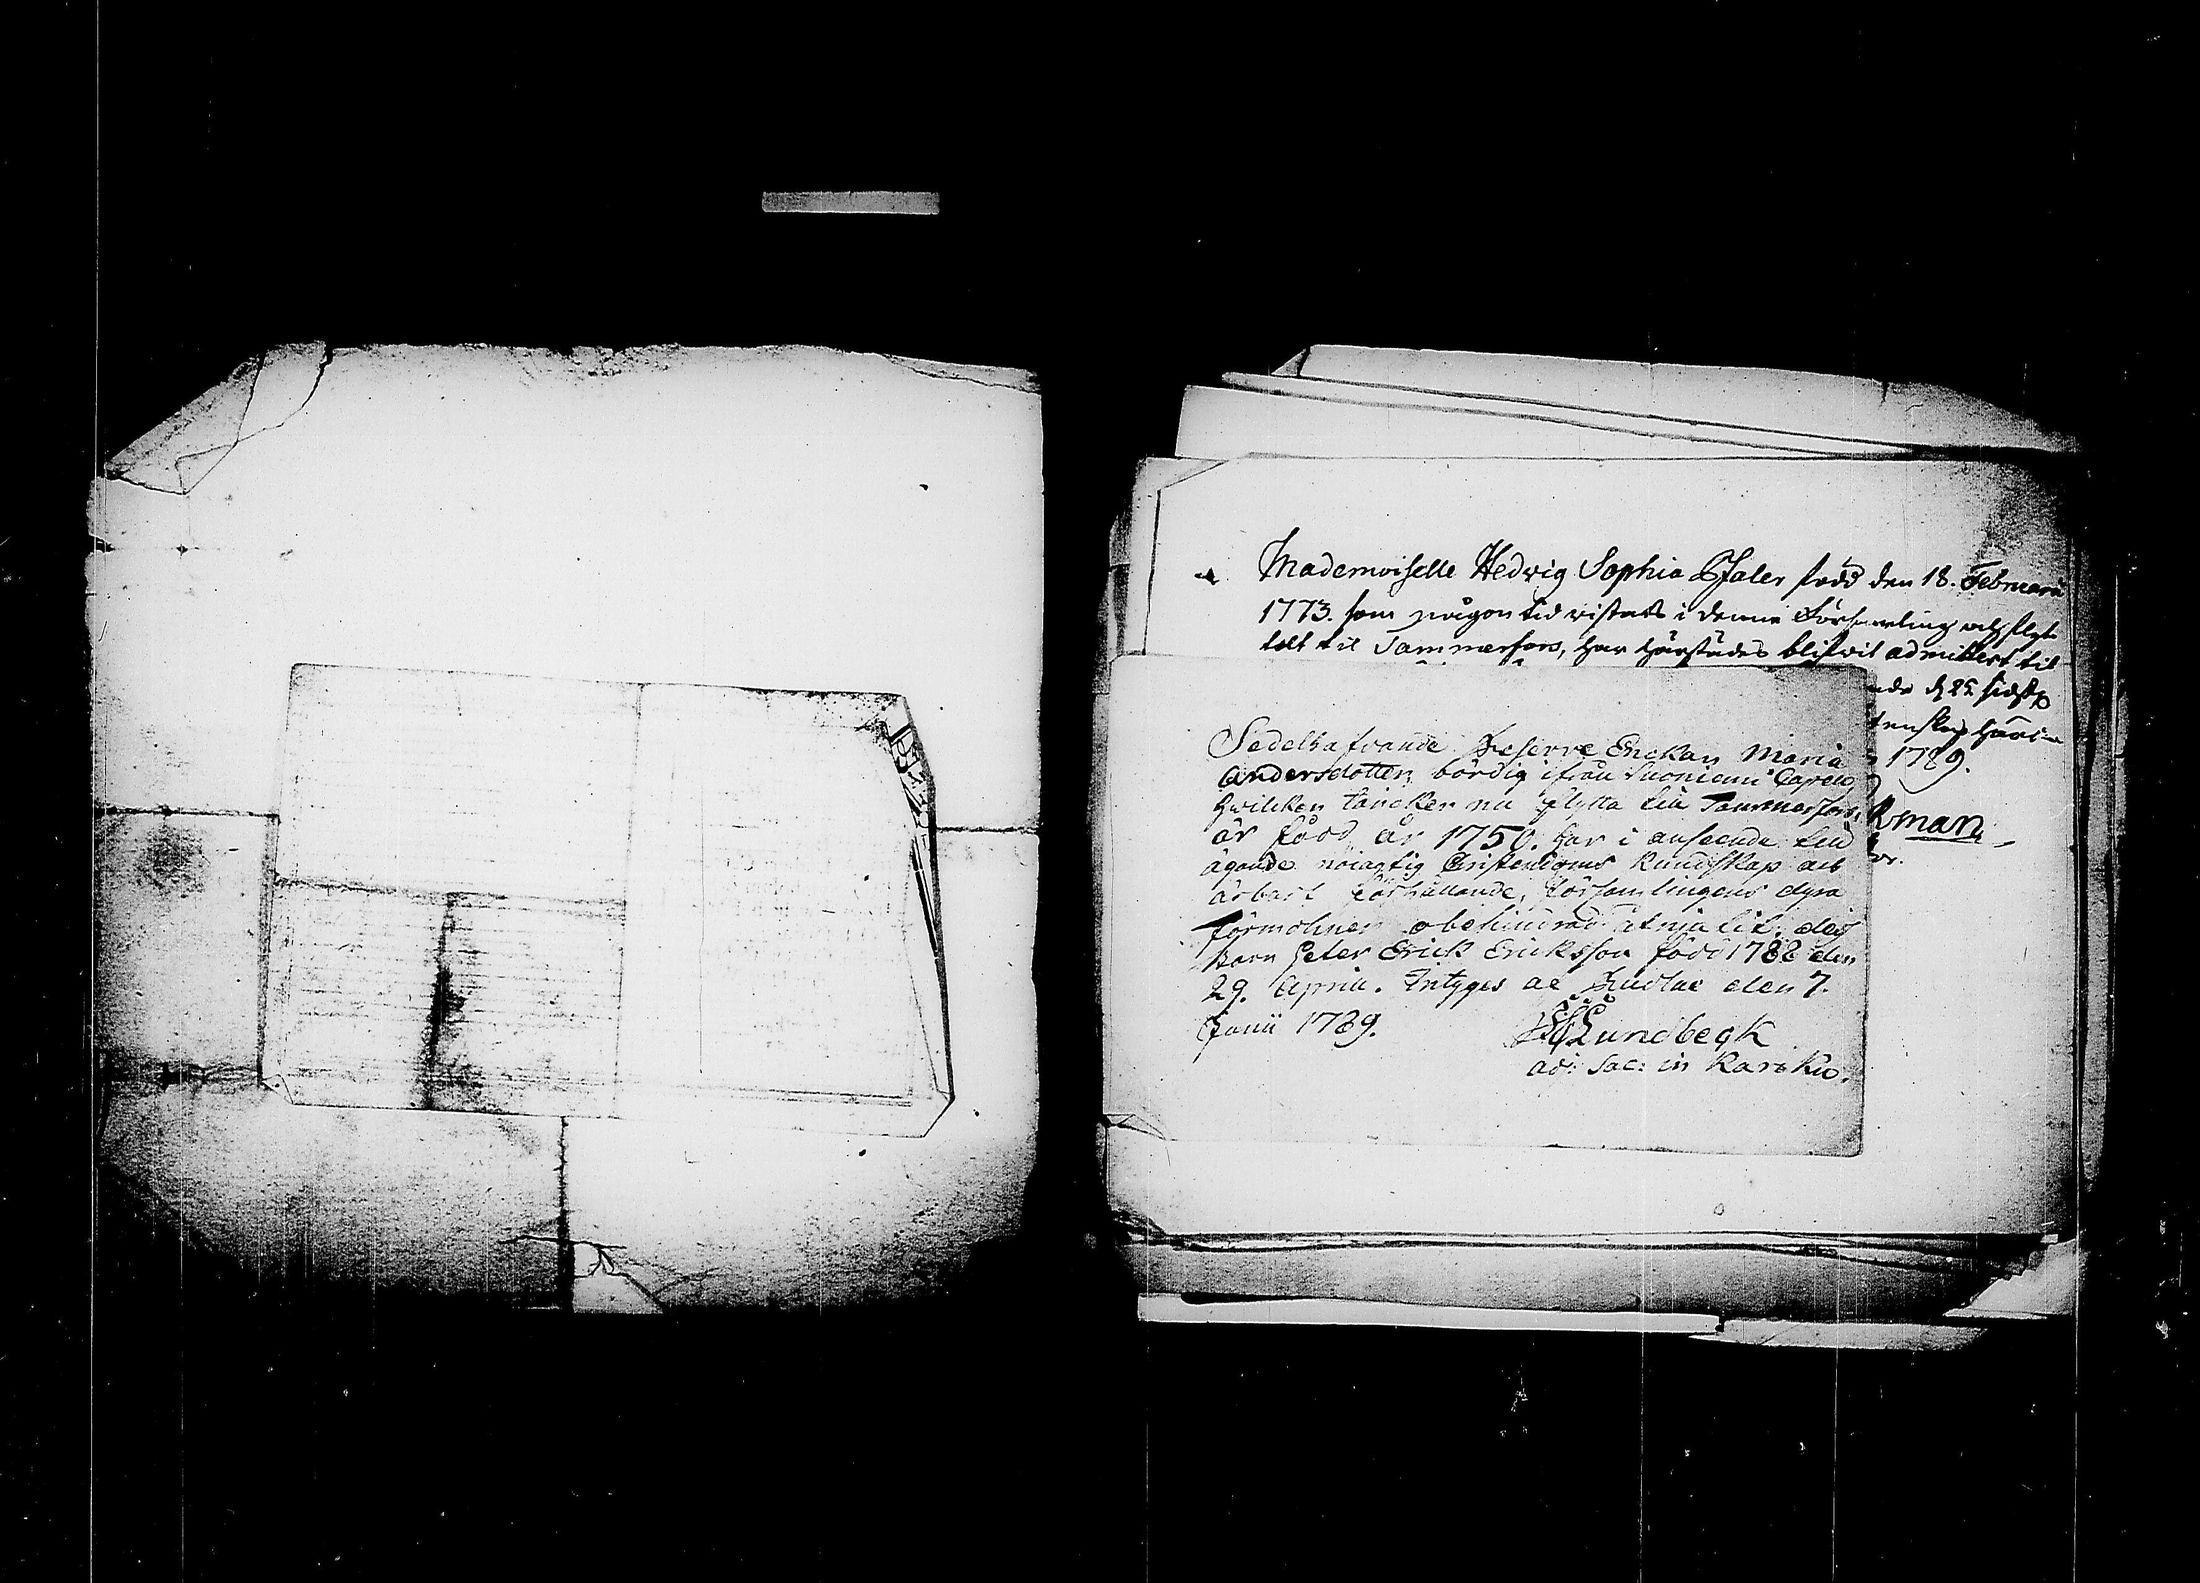 Mademoiselle Hedwig Sophia Pfaler född den 18. Februarii
1773. som någon tid vistats i denna Församling och flyt
tat til Tammerfors, har härstädes blifvit admittert til
ade d 25 sidstl.
tenskap häri
1789.
kman
Sedelhafvande Reserve Enckan Maria
Andersdotter, bördig ifrån Suoniemi Capell,
hvilcken täncker nu flytta till Tammerfors,
är född år 1750. har i anseende till
ägande nöiagtig Christendoms Kundskap och
ärbart förhållande, församlingens dyra
förmohner obehindrad åtniutit. dess
Barn Peter Erick Ericksson född 1788 den
29. April. Intyges af den 7.
Junii 1789.
Lundbegk
adj: Sac: in Karcku.